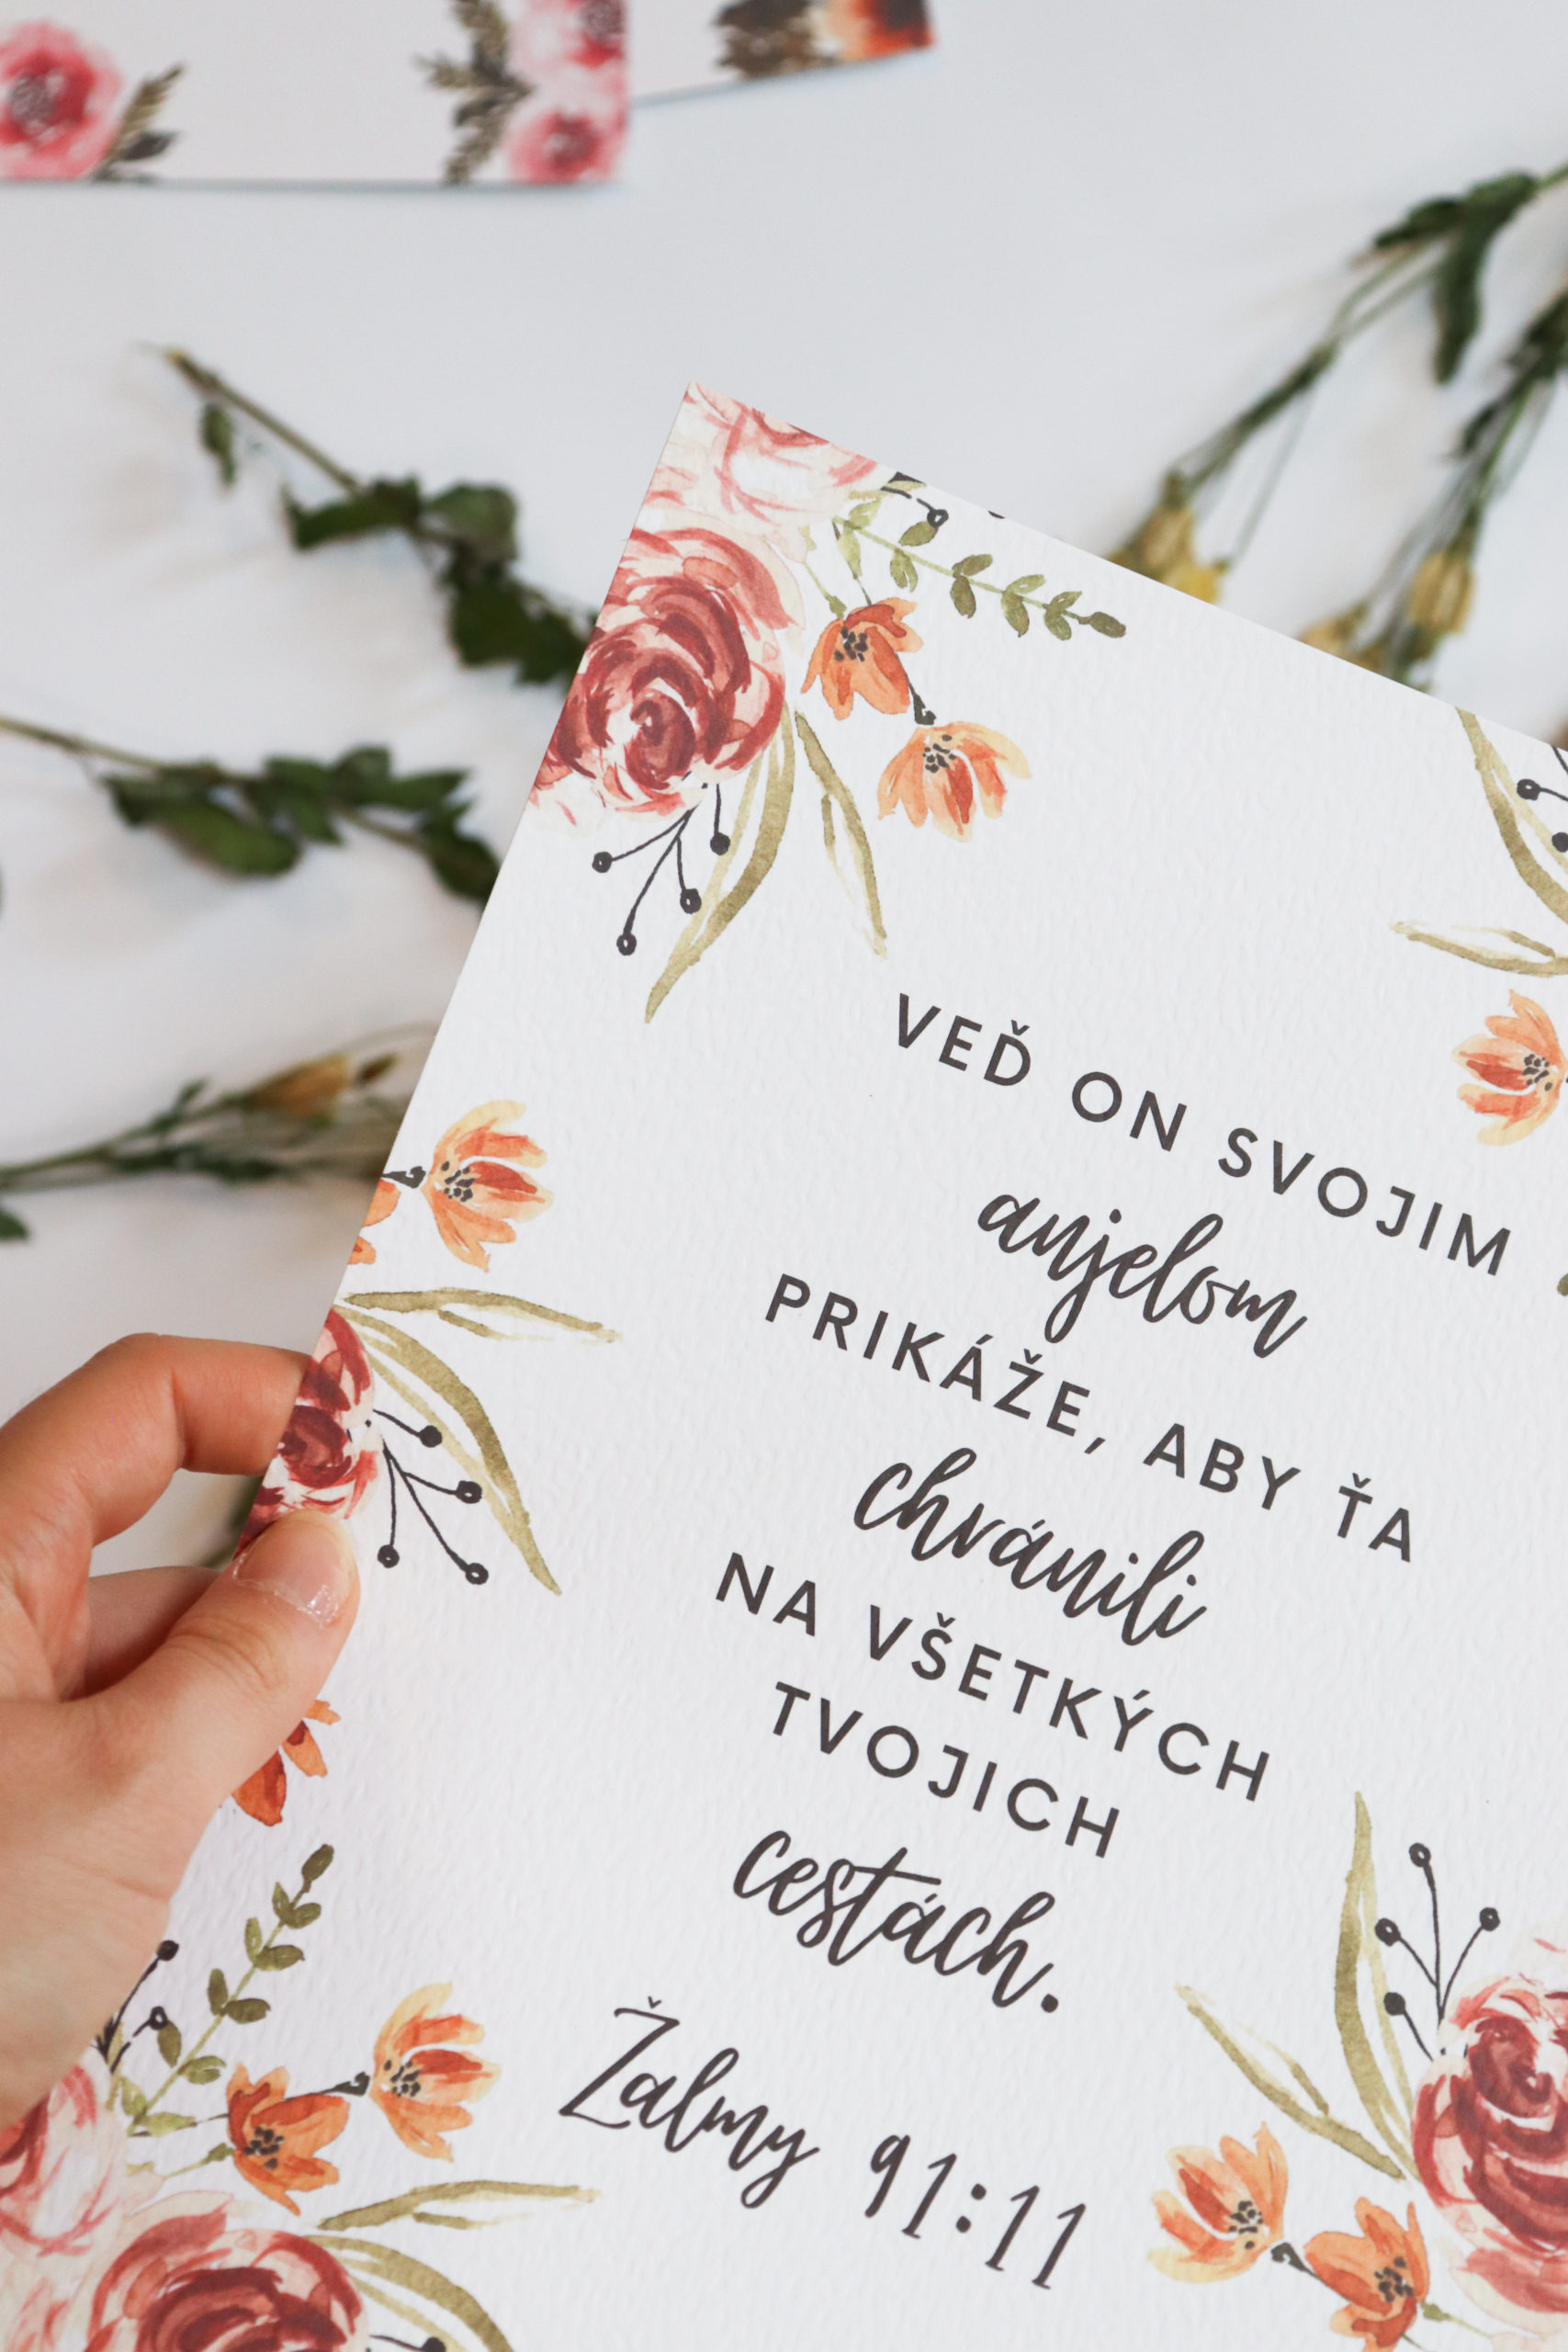 VEĎ ON SVOJIM
anjelom
PRIKÁŽE, ABY ŤA
chránili
NA VŠETKÝCH
TVOJICH
cestách.
Žalmy 91:11